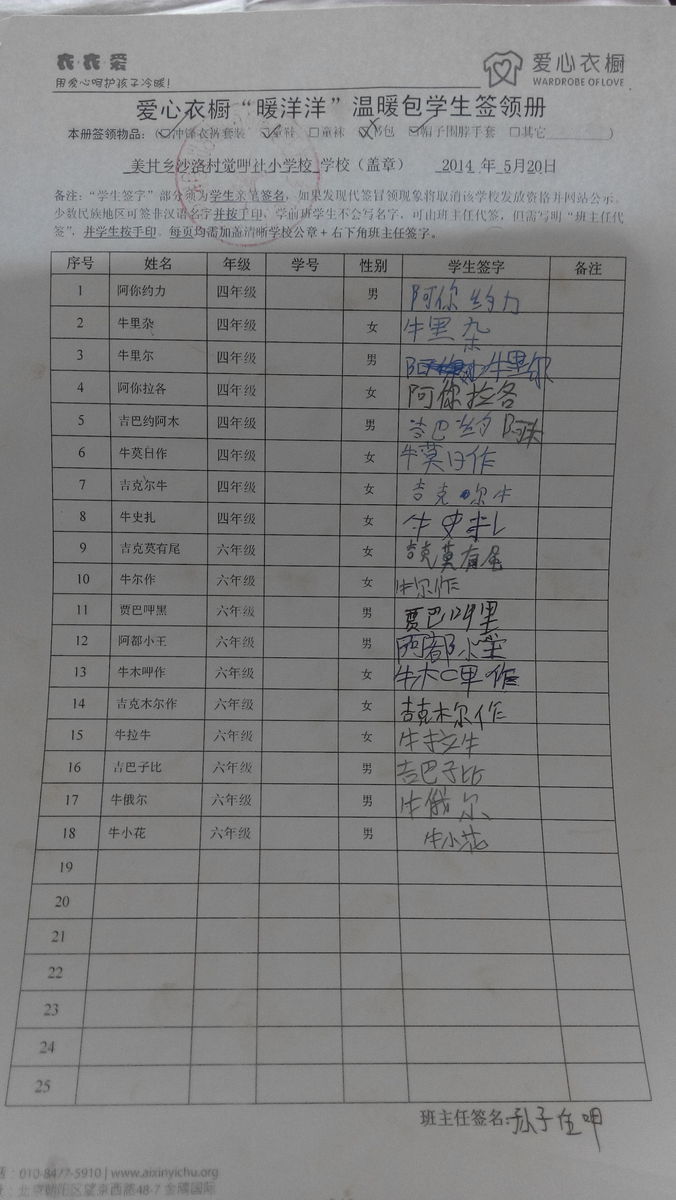 衣·衣·爱
用爱心呵护孩子冷暖!
爱心衣橱
WARDROBE OF LOVE
爱心衣橱“暖洋洋”温暖包学生签领册
本册签领物品:(☑冲锋衣裤套装 ☑童鞋 ☐童袜 ☑书包 ☑帽子围脖手套 ☐其它
美甘乡沙洛村觉呷社小学校 学校(盖章) 2014 年 5月20日
备注:“学生签字”部分须为学生亲笔签名,如果发现代签冒领现象将取消该学校发放资格并网站公示。
少数民族地区可签非汉语名字并按手印,学前班学生不会写名字,可由班主任代签,但需写明“班主任代
签”,并学生按手印。每页均需加盖清晰学校公章+右下角班主任签字。
序号 姓名 年级 学号 性别 学生签字 备注
1 阿你约力 四年级 男 阿你约力
2 牛里杂 四年级 女 牛里杂
3 牛里尔 四年级 男 牛里尔
4 阿你拉各 四年级 女 阿你拉各
5 吉巴约阿木 四年级 男 吉巴约阿木
6 牛莫日作 四年级 女 牛莫日作
7 吉克尔牛 四年级 女 吉克尔牛
8 牛史扎 四年级 女 牛史扎
9 吉克莫有尾 六年级 女 吉克莫有尾
10 牛尔作 六年级 女 牛尔作
11 贾巴呷黑 六年级 男 贾巴呷黑
12 阿都小王 六年级 男 阿都小王
13 牛木呷作 六年级 女 牛木呷作
14 吉克木尔作 六年级 女 吉克木尔作
15 牛拉牛 六年级 女 牛拉牛
16 吉巴子比 六年级 男 吉巴子比
17 牛俄尔 六年级 男 牛俄尔
18 牛小花 六年级 男 牛小花
19
20
21
22
23
24
25
班主任签名:孙子伍呷
010-8477-5910 | www.aixinyichu.org
北京朝阳区望京西路48-7 金隅国际